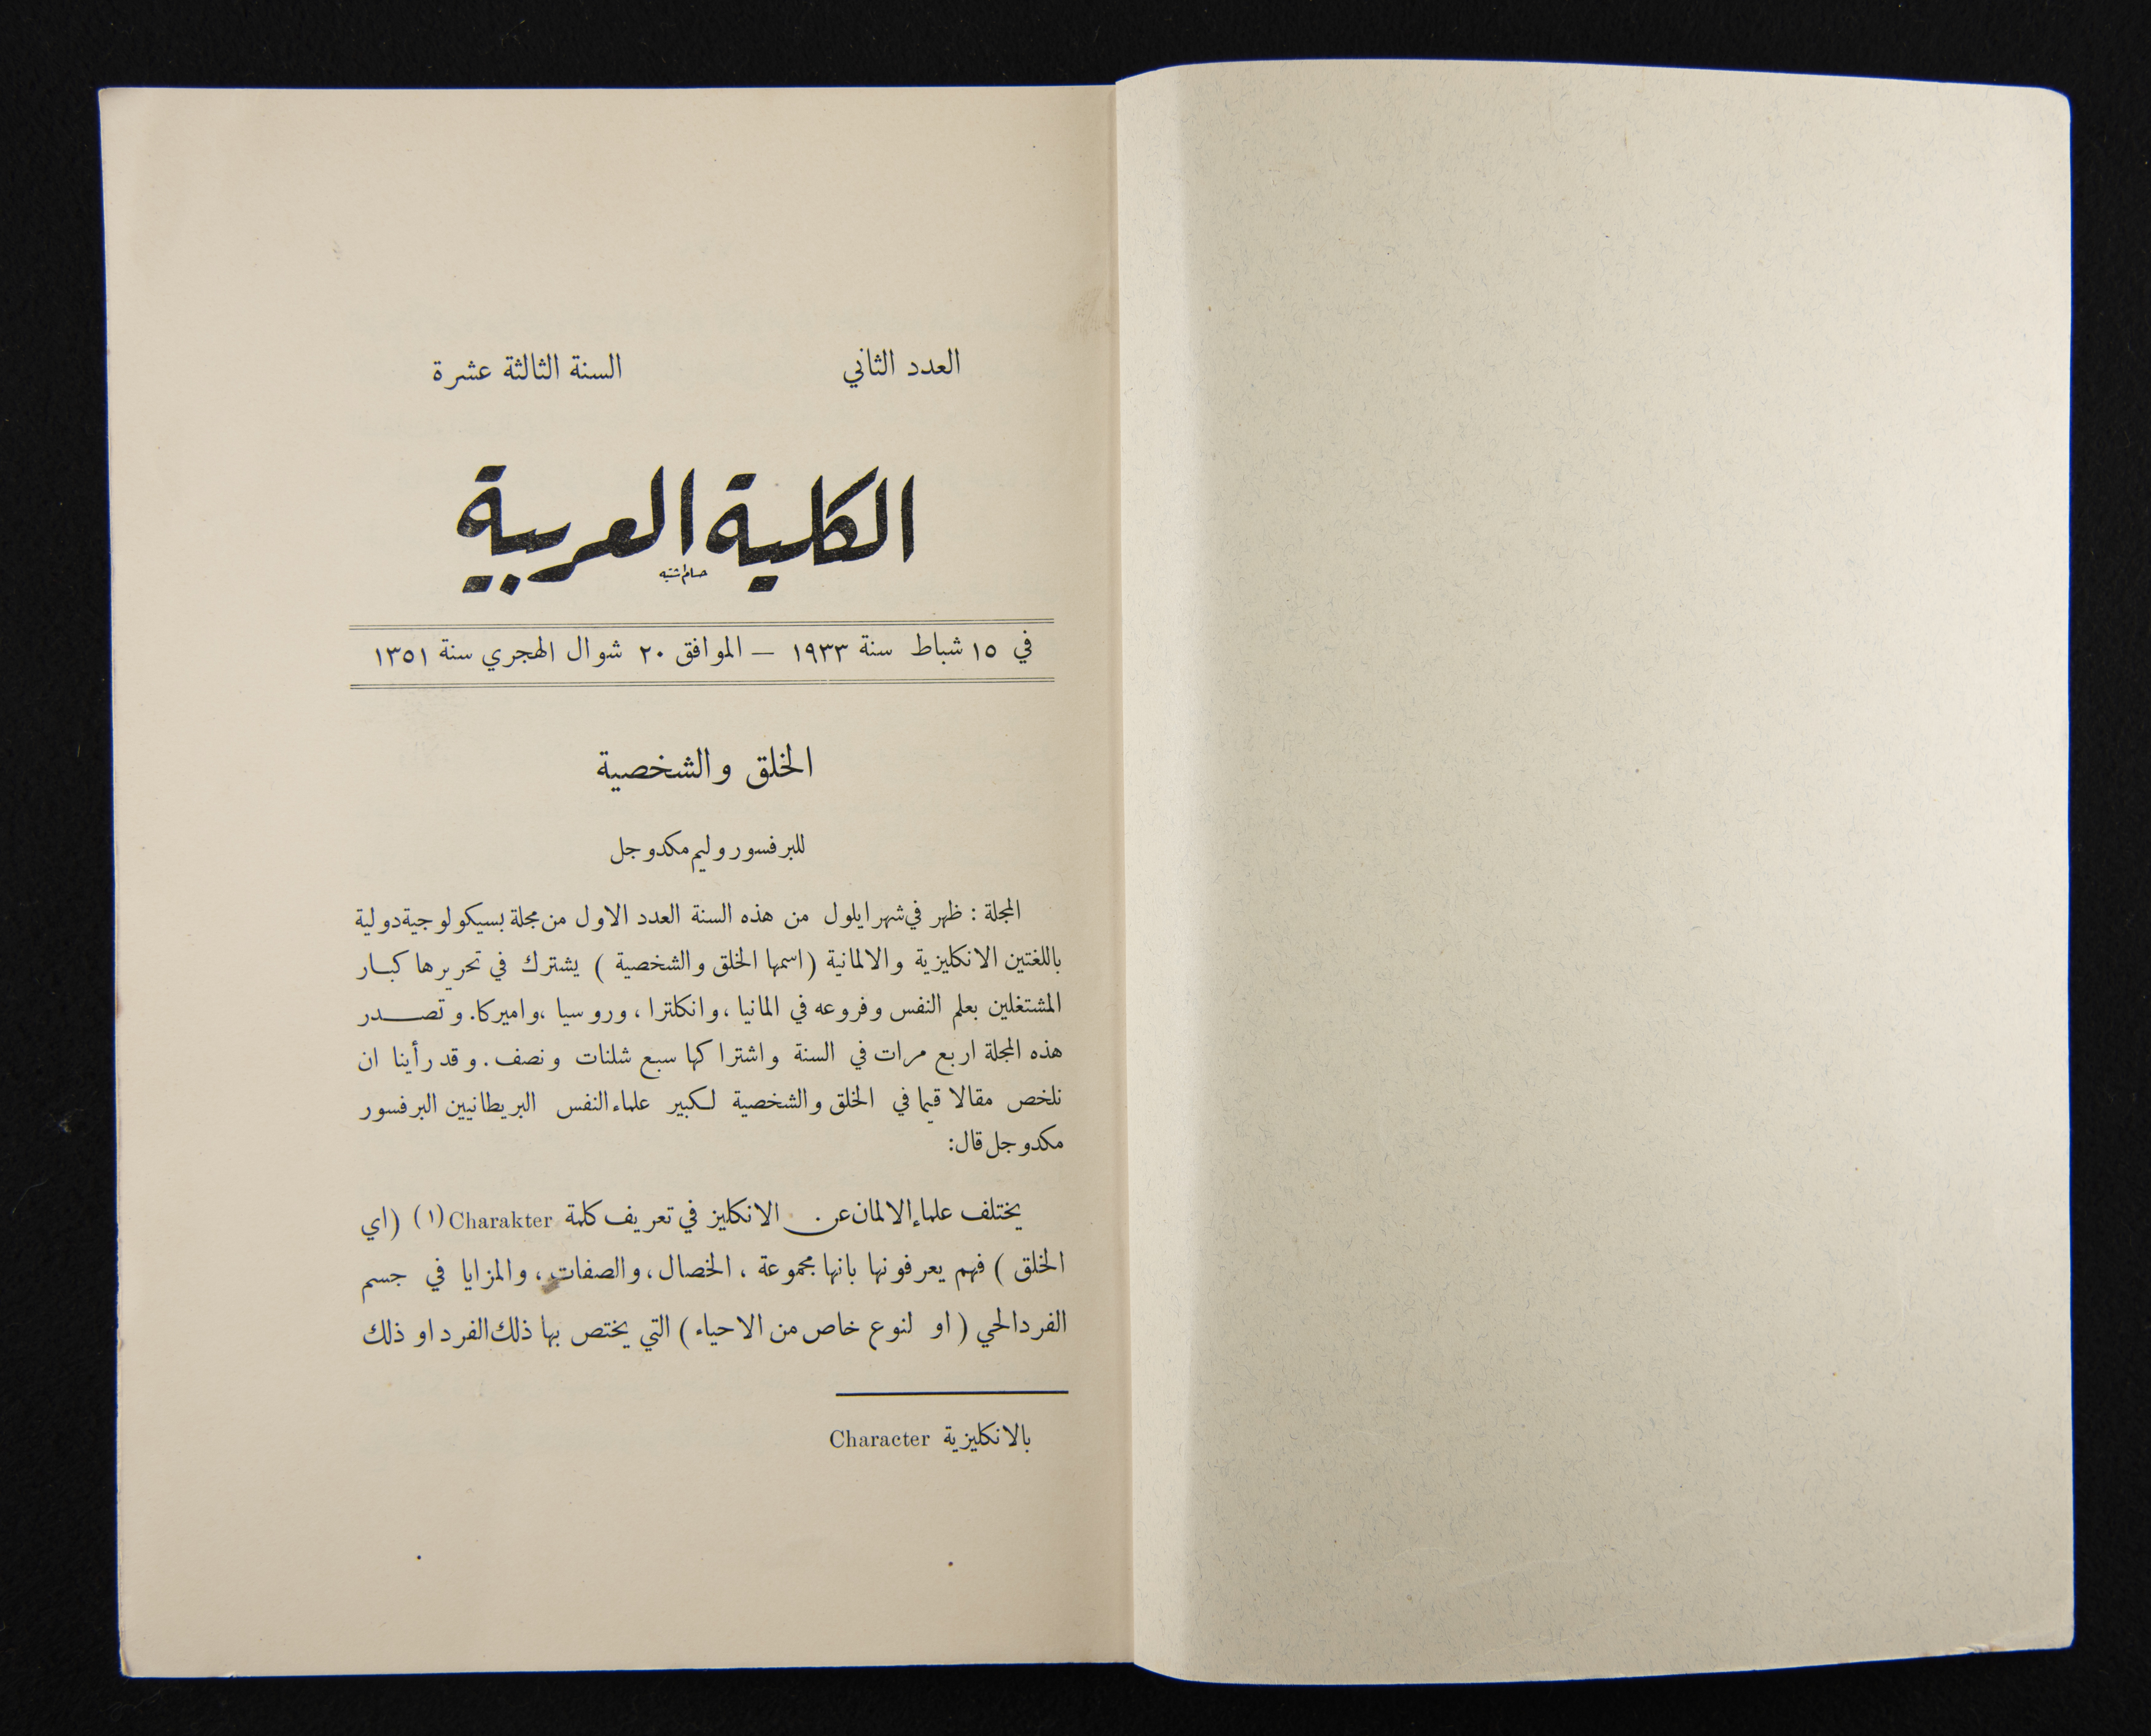 العدد الثاني السنة الثالثة عشرة
الكلية العربية
في ١٥ شباط سنة ١٩٣٣ — الموافق ٢٠ شوال الهجري سنة ١٣٥١
الخلق والشخصية
للبرفسور وليم مكدوجل
المجلة : ظهر في شهر ايلول من هذه السنة العدد الاول من مجلة بسيكولوجية دولية
باللغتين الانكليزية والالمانية (اسمها الخلق والشخصية ) يشترك في تحريرها كبار
المشتغلين بعلم النفس وفروعه في المانيا ، وانكلترا ، وروسيا ، واميركا. وتصدر
هذه المجلة اربع مرات في السنة واشتراكها سبع شلنات ونصف . وقد رأينا ان
نلخص مقالا قيما في الخلق والشخصية لكبير علماء النفس البريطانيين البرفسور
مكدوجل قال:
يختلف علماء الالمان عن الانكليز في تعريف كلمة Charakter (١) (اي
الخلق ) فهم يعرفونها بانها مجموعة ، الخصال ، والصفات ، والمزايا في جسم
الفرد الحي ( او لنوع خاص من الاحياء ) التي يختص بها ذلك الفرد او ذلك
بالانكليزية Character